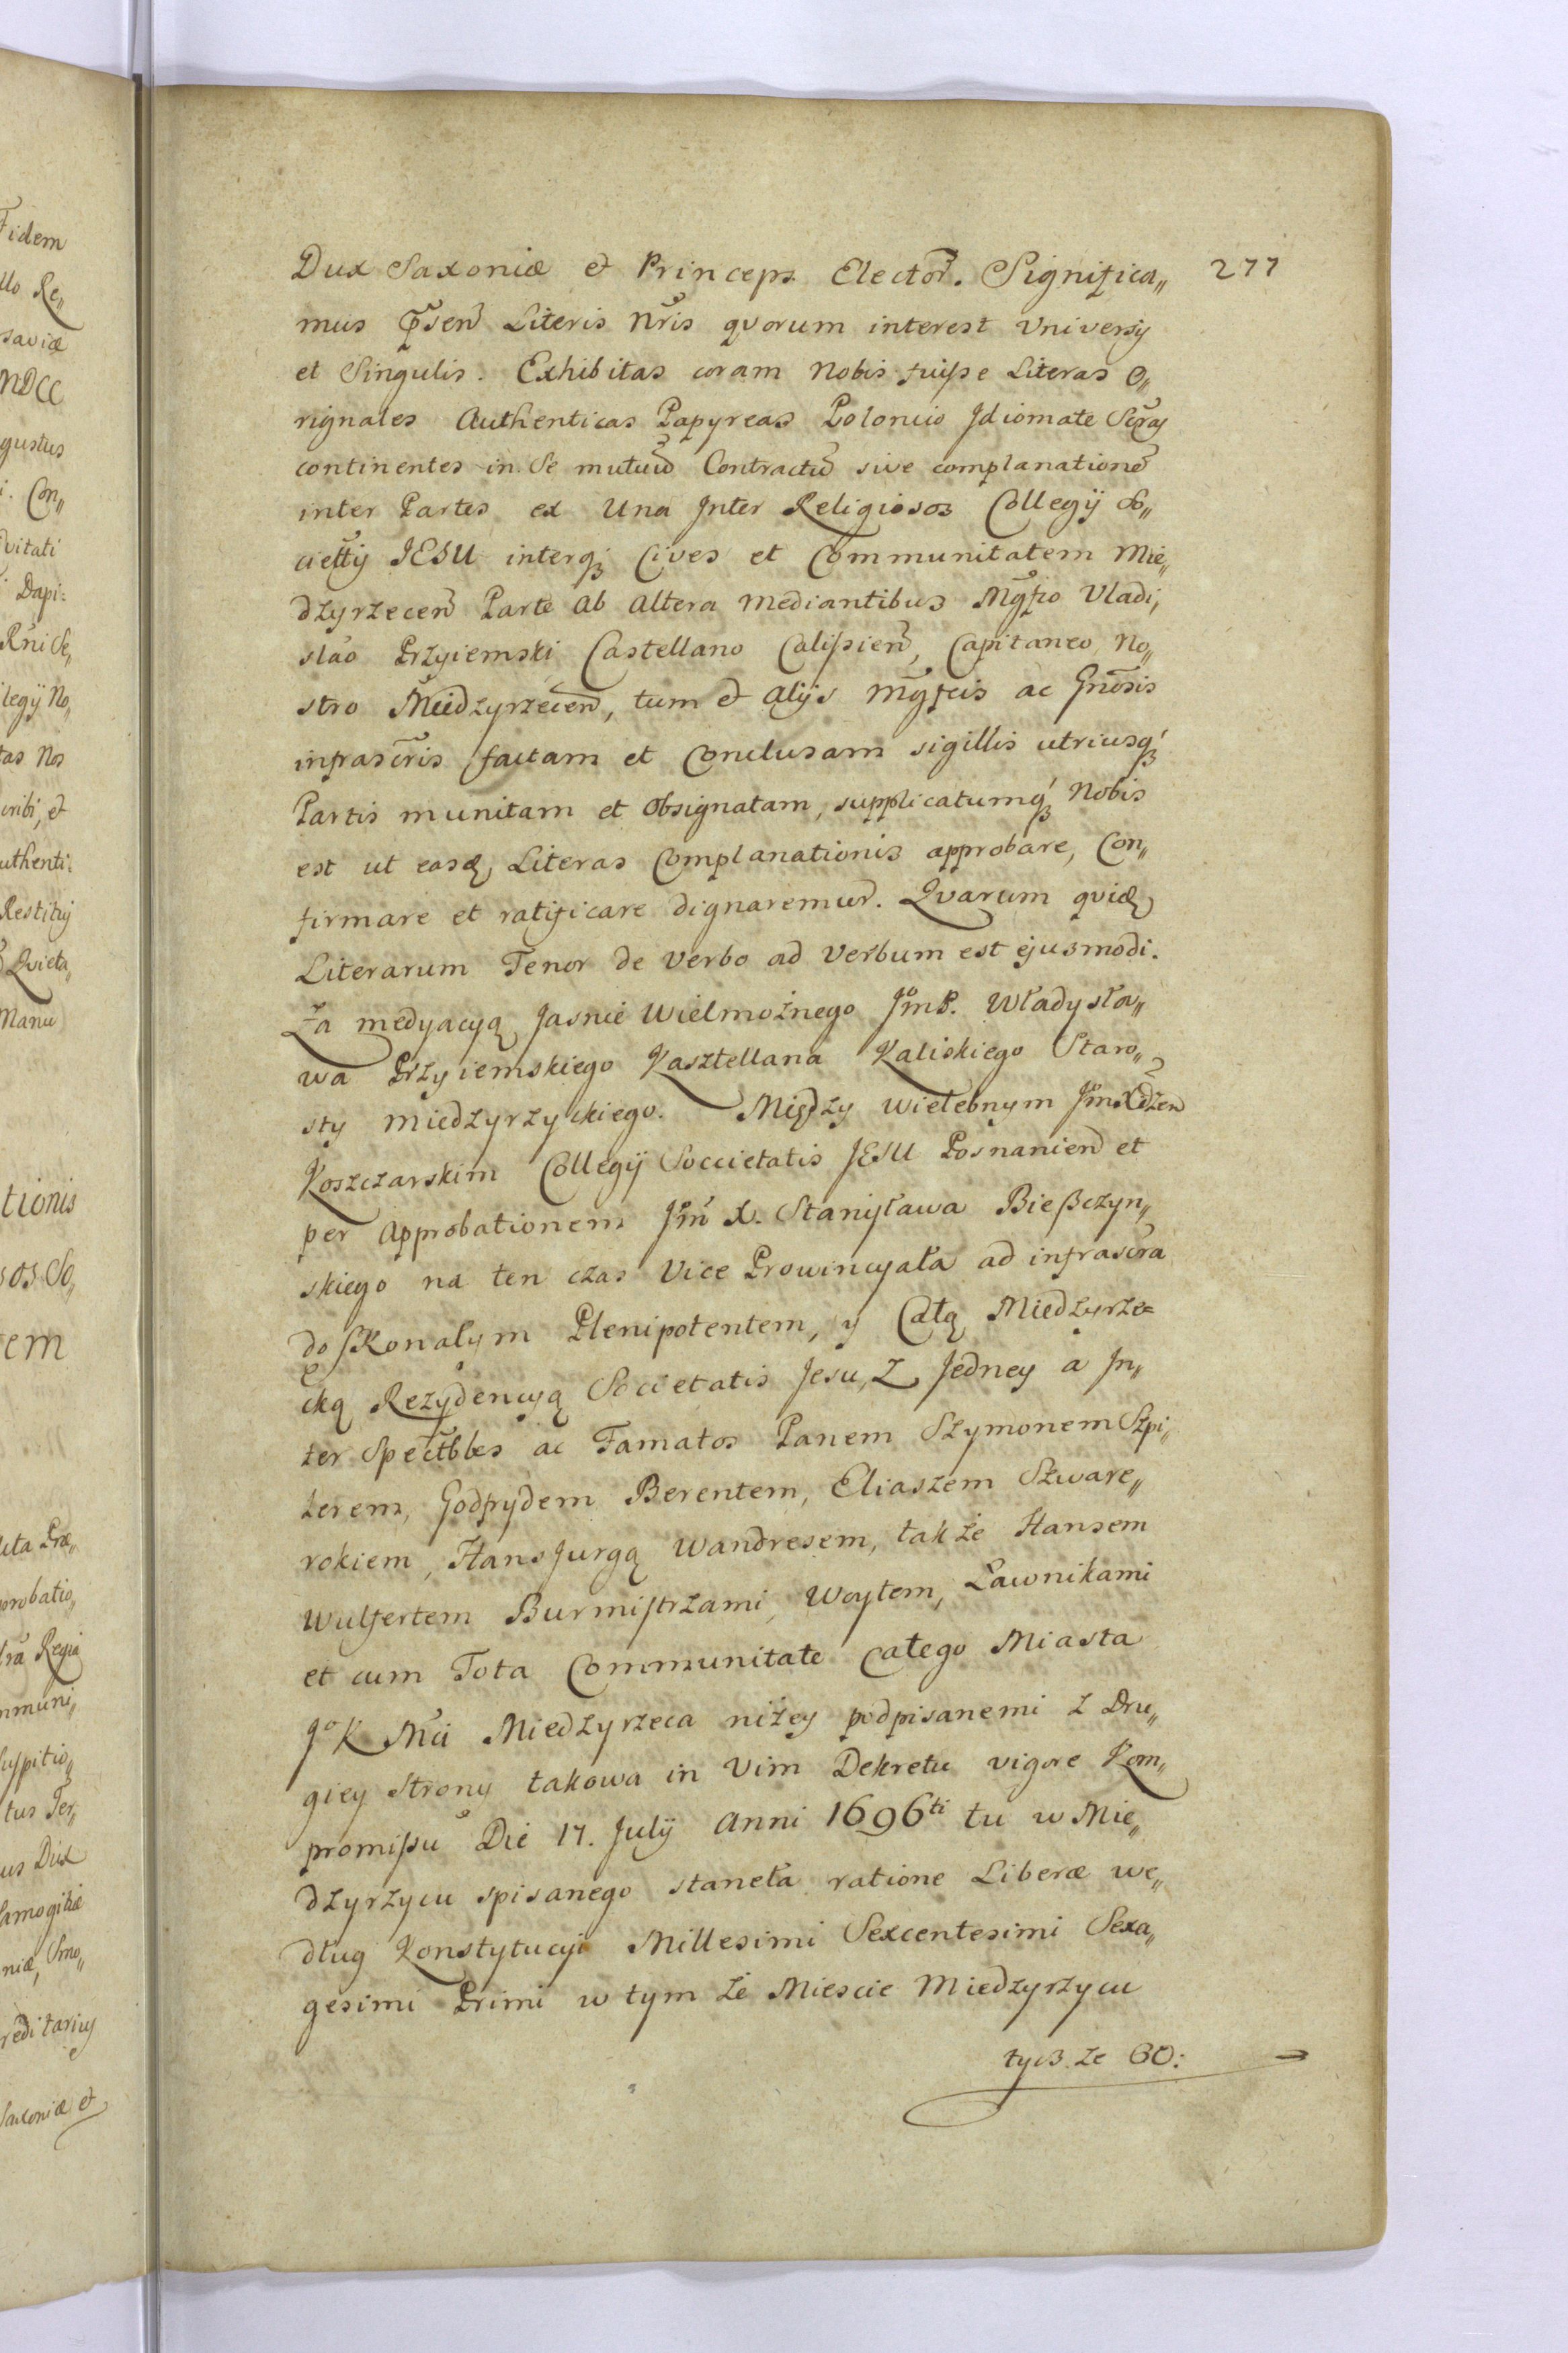 Dux Saxoniæ et Princeps Elector. Significa„
277
mus p̃sen Literis nr̃is qvorum interest Vniversij
et Singulis. Exhibitas coram Nobis fuisse Literas O„
riginales Authenticas Papyreas Polonico Idiomate Scr̃as
continentes in Se mutuũ Contractũ sive complanationẽ
inter Partes ex Una Inter Religiosos Collegij So„
ciettis IESU interq; Cives et Communitatem Mie„
dzyrzecen Parte ab Altera mediantibus Mgfico Vladi„
slao Przyiemski Castellano Calissien, Capitaneo No„
stro Miedzyrzecen, tum et Alijs Mgfcis ac Gnosis
infrascr̃is factam et Conclusam sigillis utriusq;
Partis munitam et Obsignatam, supplicatumq; Nobis
est ut easd Literas Complanationis approbare, Con„
firmare et ratificare dignaremur. Qvarum qvid
Literarum Tenor de Verbo ad Verbum est ejusmodi.
Za medyacyą Jasnie Wielmożnego JmP. Władysła„
wa Przyiemskiego Kasztellana Kaliskiego Staro„
sty Miedzyrzyckiego. Między Wielebnym JmXdzem
Koszczarskim Collegij Soccietatis JESU Posnanien et
per Approbationem Jm X. Stanisława Bießczyn„
skiego na ten czas Vice Prowincyała ad infrascr̃a
doskonałym Plenipotentem, y Całą Miedzyrze=
cką Rezydencyą Societatis Jesu, Z Jedney a In„
ter Spectbles ac Famatos Panem Szymonem Szpi„
lerem, Godfrydem Berentem, Eliaszem Szware„
rokiem, Hans Jurgą Wandresem, także Hansem
Wulfertem Burmistrzami, Woytem, Ławnikami
et cum Tota Communitate Całego Miasta
JoK Mci Miedzyrzeca niżey podpisanemi z Dru„
giey Strony takowa in Vim Dekretu vigore Kom„
promissu Die 17. Julij Anni 1696ti tu w Mie„
dzyrzycu spisanego staneła ratione Liberæ we„
dług Konstytucyi Millesimi Sexcentesimi Sexa„
gesimi Primi w tym że Miescie Miedzyrzycu